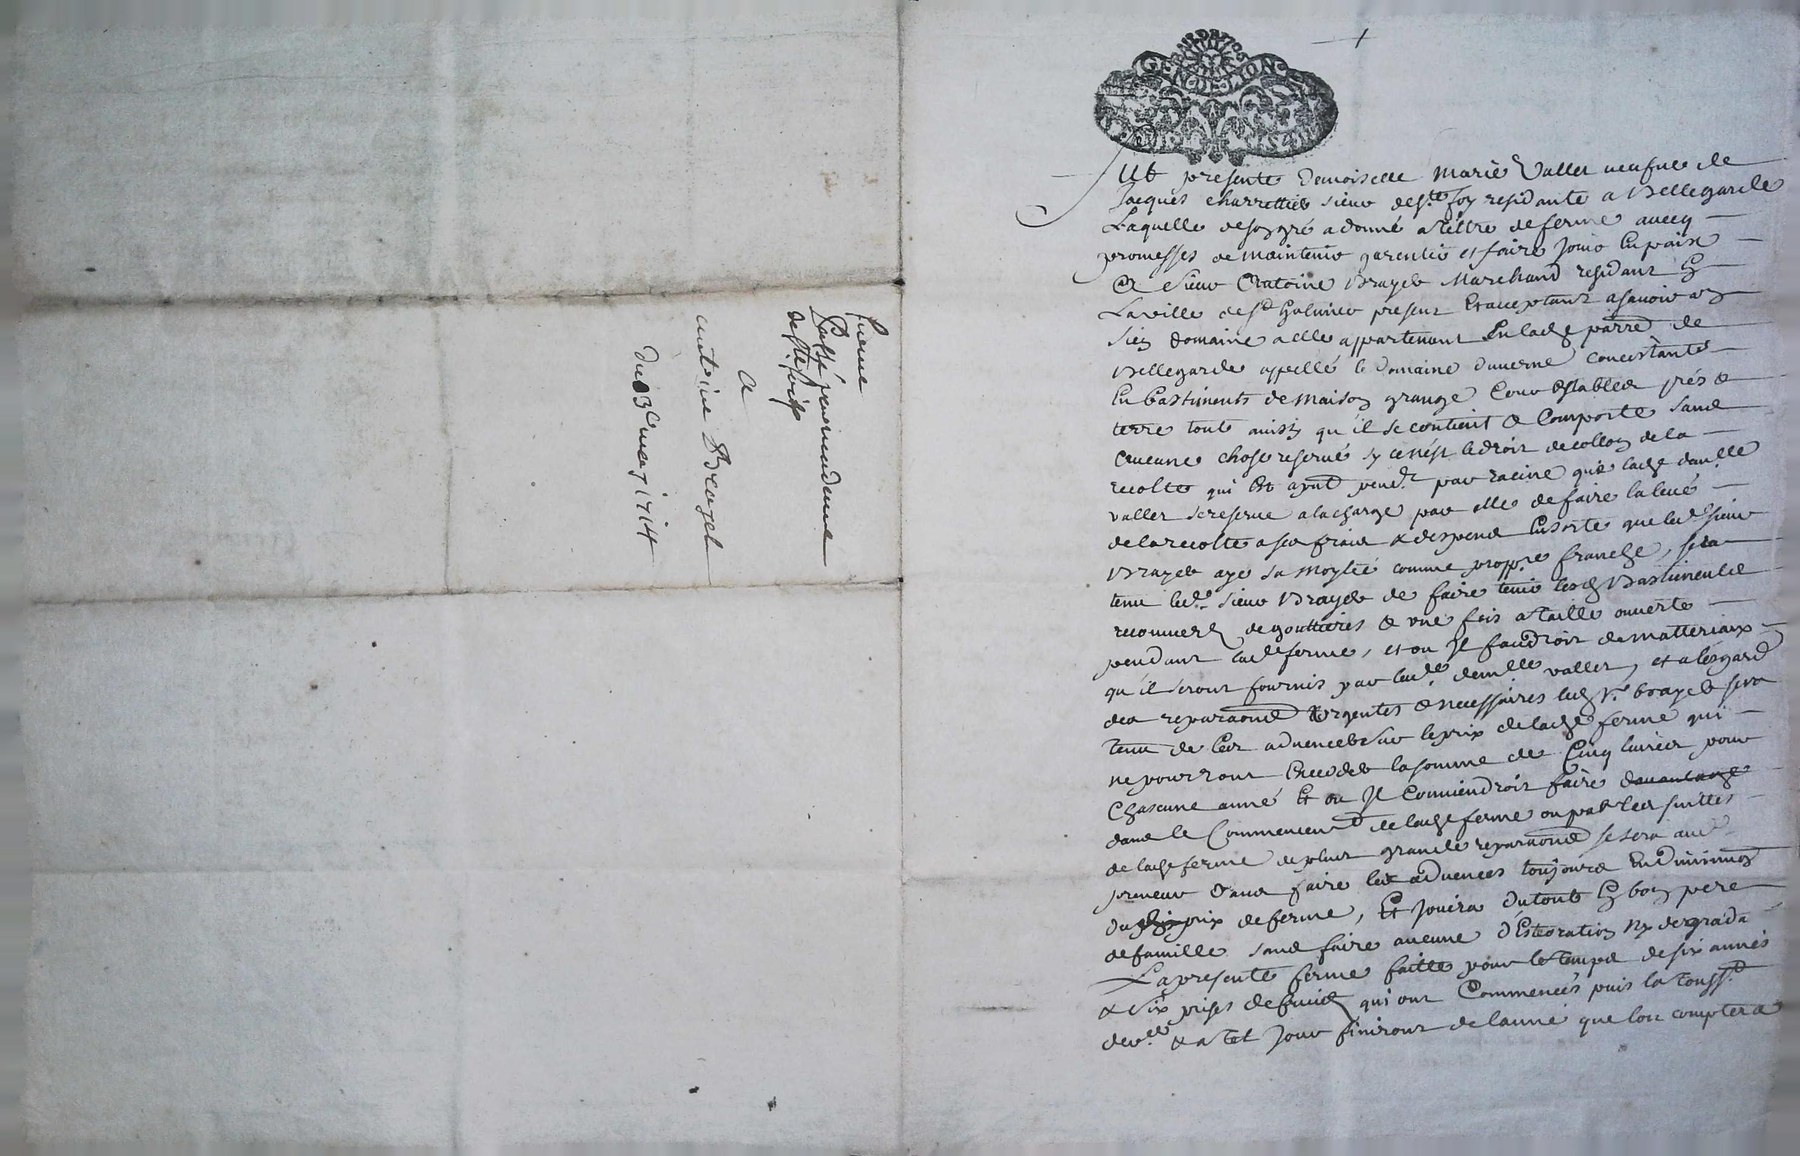 fferme
Passé par madame
de Ste foix
a
antoine Brayet
Du 3e mars 1714
GEN DE LYON
Fut presente Demoiselle Marie Valler veufue de
Jacques charrettier sieur de Ste foy residante a Bellegarde
Laquelle de son gré a donné a tiltre de ferme avecq
promesses de maintenir garentir et faire jouir en paix
A Sieur Antoine Brayet Marchand residant en
La ville de St Galmier present et acceptant asavoir un
Sien domaine a elle appartenant en lade parre de
Bellegarde appellé le domaine duverne concistante
En bastiments de maison grange Cour establed prés &
terre tout ainsy qu'il se contient & Comporte sans
Aucune chose reservé sy ce n'est le droit de collon de la
recolte qui est aynt pend.t par racine que lade dam.lle
valler se reserve a la charge par elle de faire la levé
de la recolte a ses frais & despens En sorte que led. sieur
Brayet aye sa moytié comme propp.re franche, sera
tenu led. sieur Brayet de faire tenir lesd Bastiments
recouverts de gouttieres & une fois a taille ouverte
pendant lad.e ferme, et ou Il faudroit de matteriaux
qu'il seront fournis par lad.e dem.lle valler, et a l'esgard
des reparaons Urgentes & necessaires led s.r brayet sera
tenu de les advencer sur le prix de lade ferme qui
ne pourront Exceder la somme de Cinq livres pour
Chascune anné Et ou Il Conviendroit faire davantage
dans le Commencemt de lade ferme ou par les suittes
de lade ferme de plus grande reparaons se sera aud
preneur d'ans faire les advences toujours En diminuon
du prix de ferme, Et jouira du tout En bon pere
de famille sans faire aucune d'Esteoration ny degrada
La presente ferme faitte pour le temps de six annés
& six prises de fruits qui ont Commencés puis la touss.t
der.re & a tel jour finiront de l'anné que l'on comptera